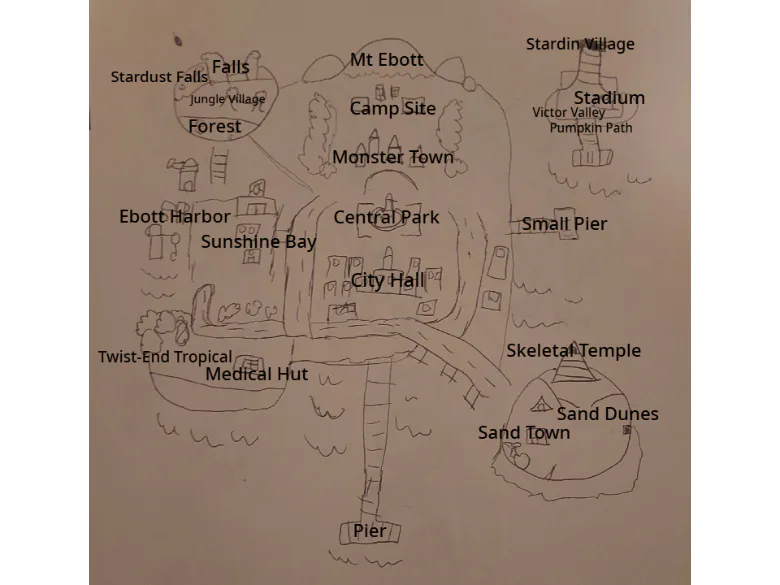 Mt Ebott
Stardin Village
Falls
Stardust Falls
Jungle Village
Forest
Camp Site
Stadium
Victor Valley
Pumpkin Path
Monster Town
Ebott Harbor
Central Park
Small Pier
Sunshine Bay
City Hall
Skeletal Temple
Twist-End Tropical
Medical Hut
Sand Dunes
Sand Town
Pier